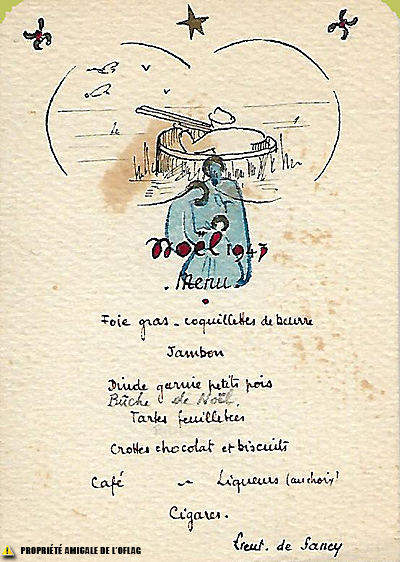 Noël 1943
. Menu .
Foie gras - coquillettes de beurre
Jambon
Dinde garnie petits pois
Bûche de Noël.
Tartes feuilletées
Crottes chocolat et biscuits
Café ~ Liqueurs (au choix)
Cigares.
Lieut. de Sancy
PROPRIÉTÉ AMICALE DE L'OFLAG